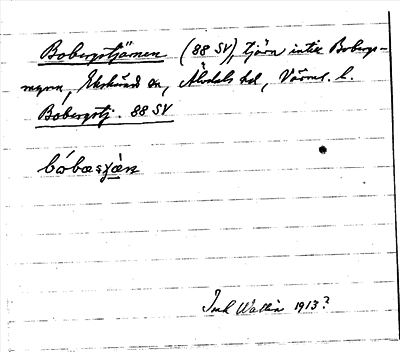 Bobergstjärnen (88 SV), tjärn intill Bobergs-
myren, Ekshärad sn, Älvdals hd, Värml. l.
Bobergstj. 88 SV
Wallin 1913?